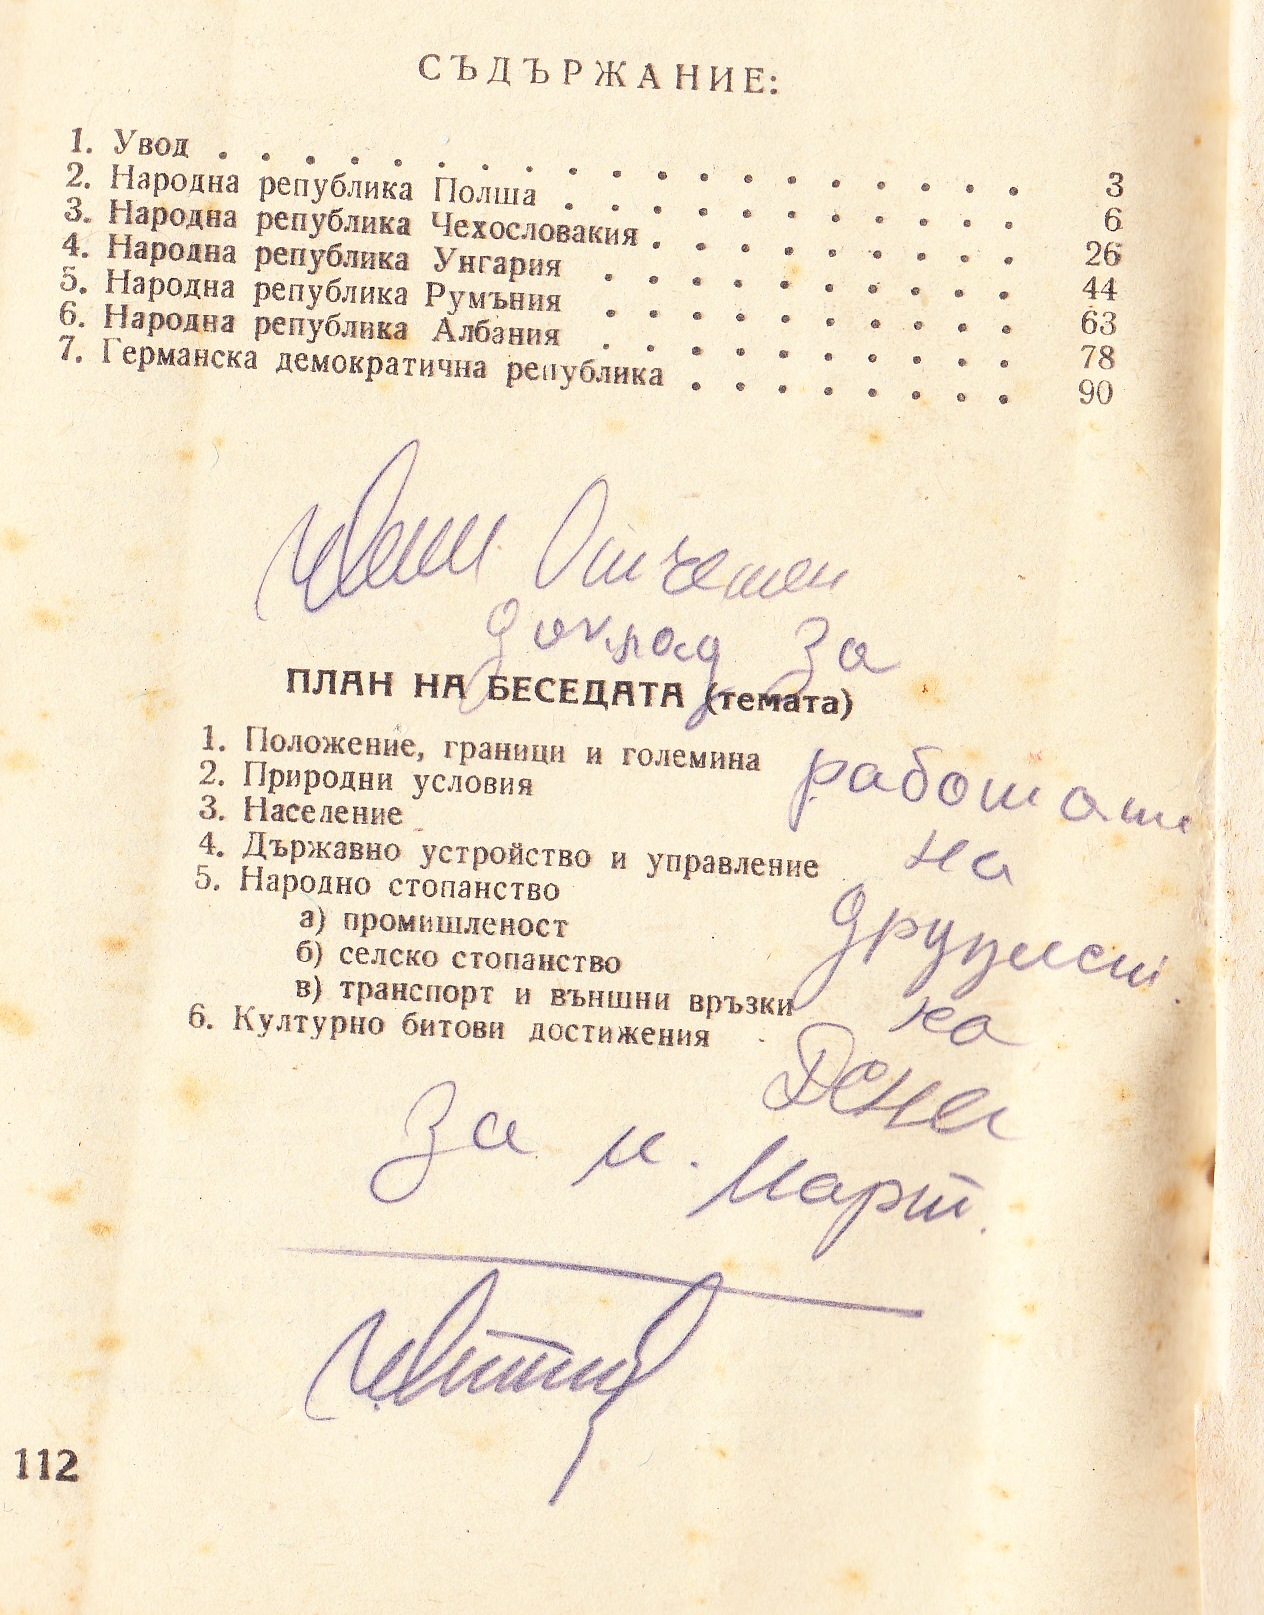 СЪДЪРЖАНИЕ:
1. Увод . . . . . . . . . . . . . . . . . . . 3
2. Народна република Полша . . . . . . . . . . . 6
3. Народна република Чехословакия . . . . . . . . . 26
4. Народна република Унгария . . . . . . . . . . 44
5. Народна република Румъния . . . . . . . . . . 63
6. Народна република Албания . . . . . . . . . . 78
7. Германска демократична република . . . . . . . . 90
Отчетен
доклад за
ПЛАН НА БЕСЕДАТА (темата)
1. Положение, граници и големина
2. Природни условия
работата
3. Население
на
4. Държавно устройство и управление
5. Народно стопанство
а) промишленост
б) селско стопанство
в) транспорт и външни връзки
6. Културно битови достижения
За м. Март.
112